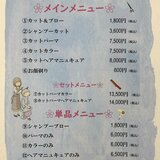 メインメニュー
①カット＆ブロー 1,800円(税込)
②シャンプーカット 3,600円(税込)
③カットパーマ 7,500円(税込)
④カットカラー 7,500円(税込)
⑤カットヘアマニキュア 8,000円(税込)
⑥お顔剃り 600円(税込)
セットメニュー
カットパーマカラー 13,500円(税込)
カットパーマヘアマニキュア 14,000円(税込)
単品メニュー
⑨シャンプーブロー 1,800円(税込)
⑩パーマのみ 6,000円(税込)
⑪カラーのみ 6,000円(税込)
⑫ヘアマニキュアのみ 6,500円(税込)